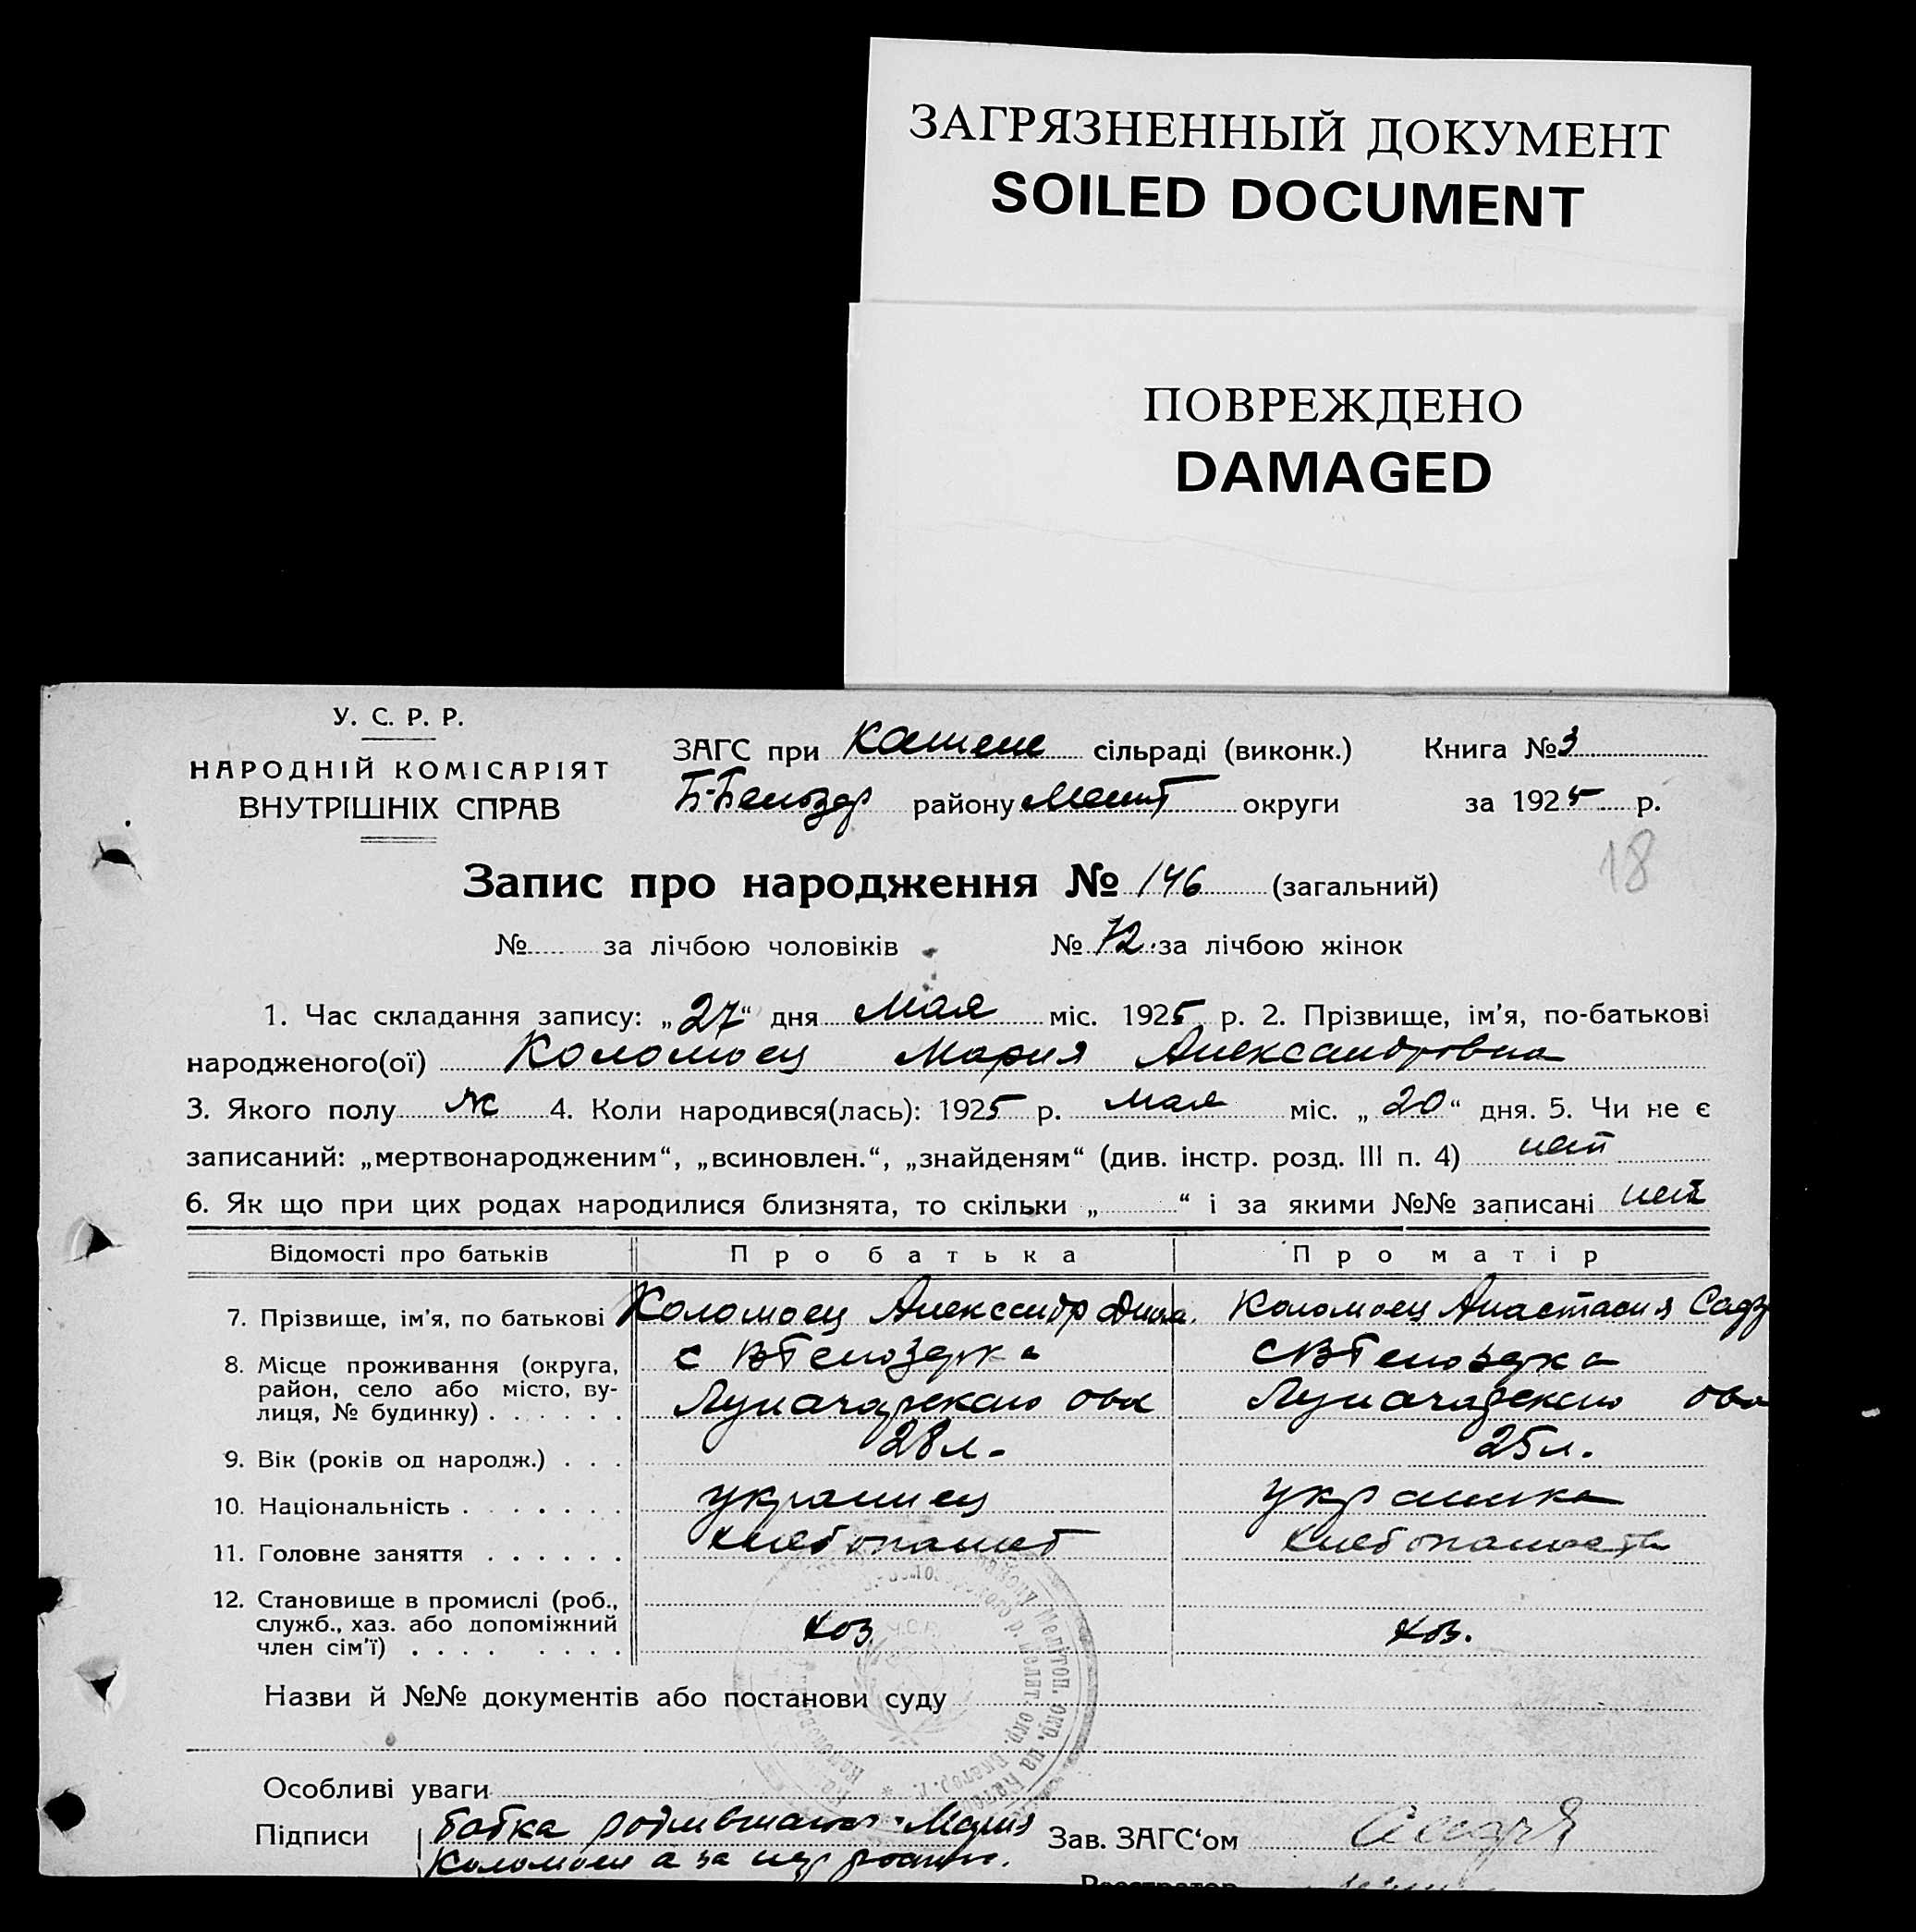 ЗАГРЯЗНЕННЫЙ ДОКУМЕНТ
SOILED DOCUMENT
ПОВРЕЖДЕНО
DAMAGED
У. С. Р. Р.
НАРОДНІЙ КОМІСАРІЯТ
ВНУТРІШНІХ СПРАВ
ЗАГС при сільраді (виконк.) Книга № 3
Б-Белозер району Мелит округи за 1925 р.
18
Запис про народження № 146 (загальний)
№ за лічбою чоловіків № 72 за лічбою жінок
1. Час складання запису: „27“ дня Мая міс. 1925 р. 2. Прізвище, ім'я, по-батькові
народженого(ої) Коломоец Мария Александровна
3. Якого полу ж 4. Коли народився(лась): 1925 р. мая міс. „20“ дня. 5. Чи не є
записаний: „мертвонародженим“, „всиновлен.“, „знайденям“ (див. інстр. розд. III п. 4) нет
6. Як що при цих родах народилися близнята, то скільки „ “ і за якими №№ записані нет
Відомості про батьків Про батька Про матір
7. Прізвище, ім'я, по батькові Коломоец Александр Коломоец Анастасия
8. Місце проживання (округа, район, село або місто, вулиця, № будинку) с ВБелозерка с ВБелозерка
Луначарского Луначарского
9. Вік (років од народж.) 28 л. 25 л.
10. Національність украинец украинка
11. Головне заняття хлебопашет
12. Становище в промислі (роб., служб., хаз. або допоміжний член сім'ї) хоз хоз.
Назви й №№ документів або постанови суду
Особливі уваги
Підписи бабка Мария Зав. ЗАГС'ом
Коломоец а за
Реєстратор